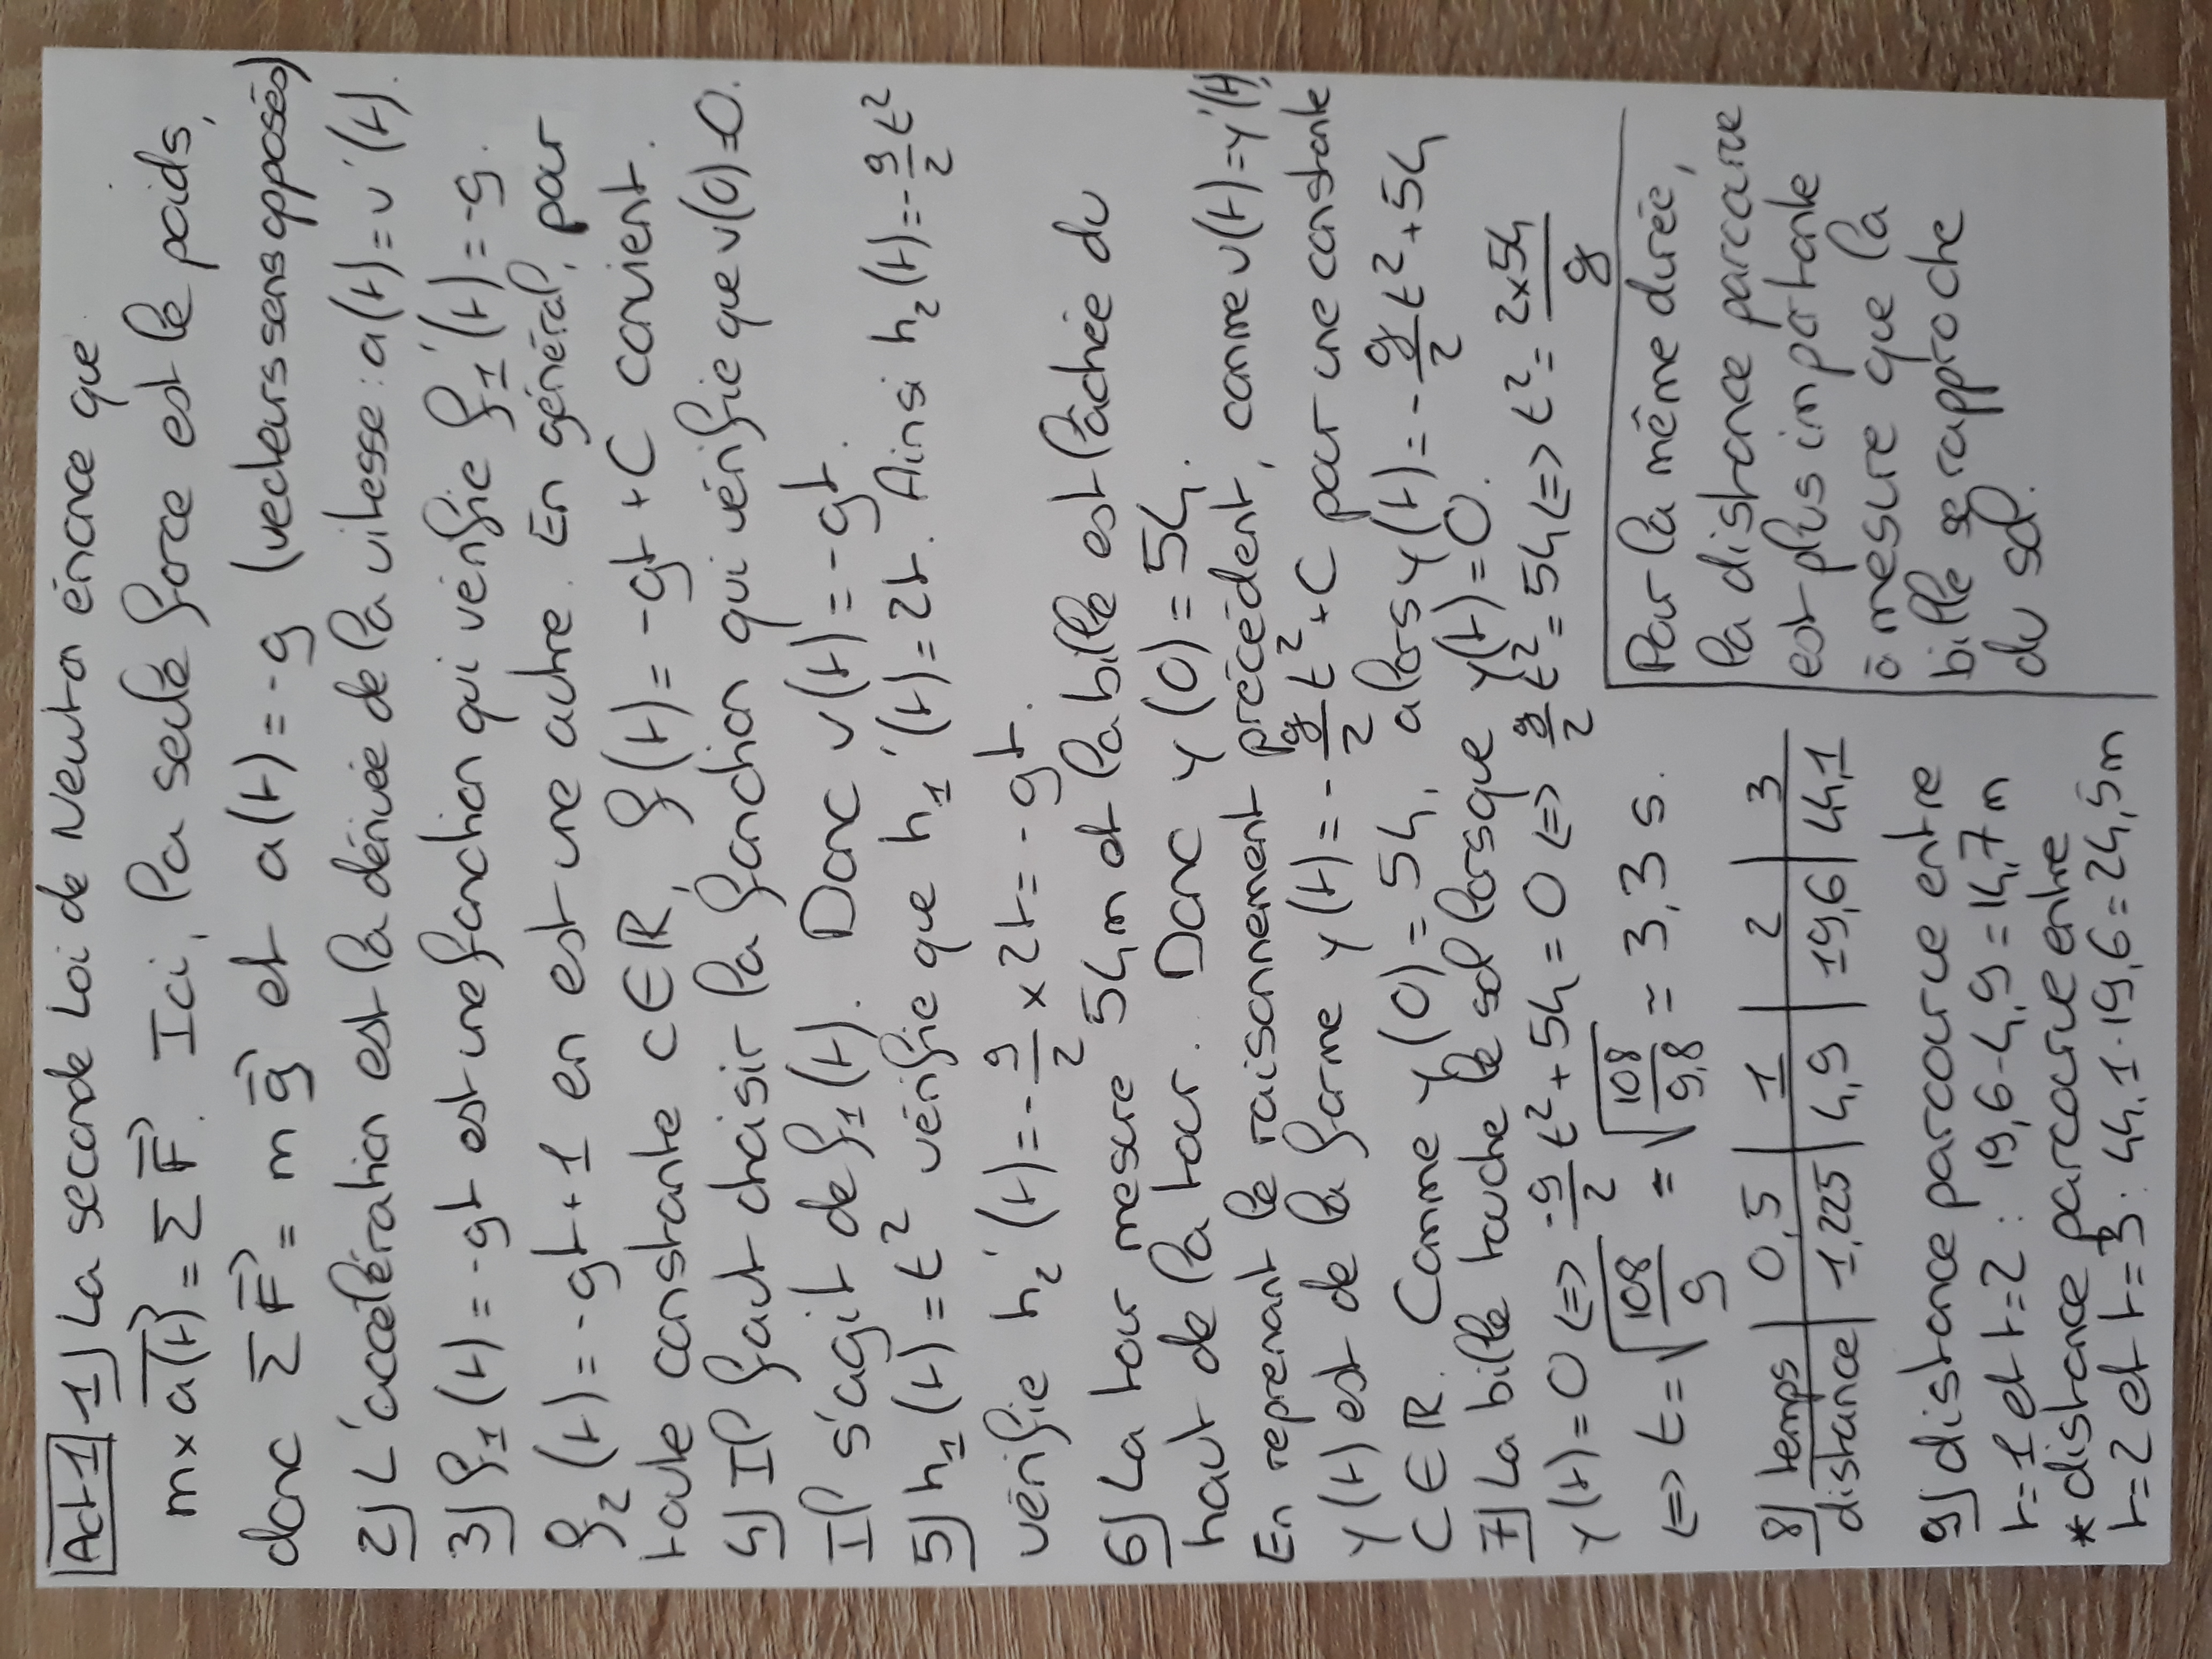 Act 1 1) La seconde Loi de Newton énonce que
m × a(t) = Σ F. Ici, la seule force est le poids,
donc Σ F = m g et a(t) = -g (vecteurs sens opposés)
2) L'accélération est la dérivée de la vitesse : a(t) = v'(t).
3) f₁(t) = -gt est une fonction qui vérifie f₁'(t) = -g.
f₂(t) = -gt + 1 en est une autre. En général, pour
toute constante C∈ℝ, f(t) = -gt + C convient.
4) Il faut choisir la fonction qui vérifie que v(0)=0.
Il s'agit de f₁(t). Donc v(t) = -gt.
5) h₁(t) = t² vérifie que h₁'(t) = 2t. Ainsi h₂(t) = -g/2 t²
vérifie h₂'(t) = -g/2 × 2t = -gt.
6) La tour mesure 54m et la bille est lâchée du
haut de la tour. Donc y(0) = 54.
En reprenant le raisonnement précédent, comme v(t)=y'(t),
y(t) est de la forme y(t) = -g/2 t² + C pour une constante
C∈ℝ. Comme y(0) = 54, alors y(t) = -g/2 t² + 54
7) La bille touche le sol lorsque y(t) = 0.
y(t) = 0 ⟺ -g/2 t² + 54 = 0 ⟺ g/2 t² = 54 ⟺ t² = 2×54/g
⟺ t = √(108/g) = √(108/9,8) ≃ 3,3 s.
8) temps | 0,5 | 1 | 2 | 3
distance | 1,225 | 4,9 | 19,6 | 44,1
9) distance parcourue entre
t=1 et t=2 : 19,6-4,9 = 14,7 m
* distance parcourue entre
t=2 et t=3 : 44,1-19,6 = 24,5 m
Pour la même durée,
la distance parcourue
est plus importante
à mesure que la
bille se rapproche
du sol.